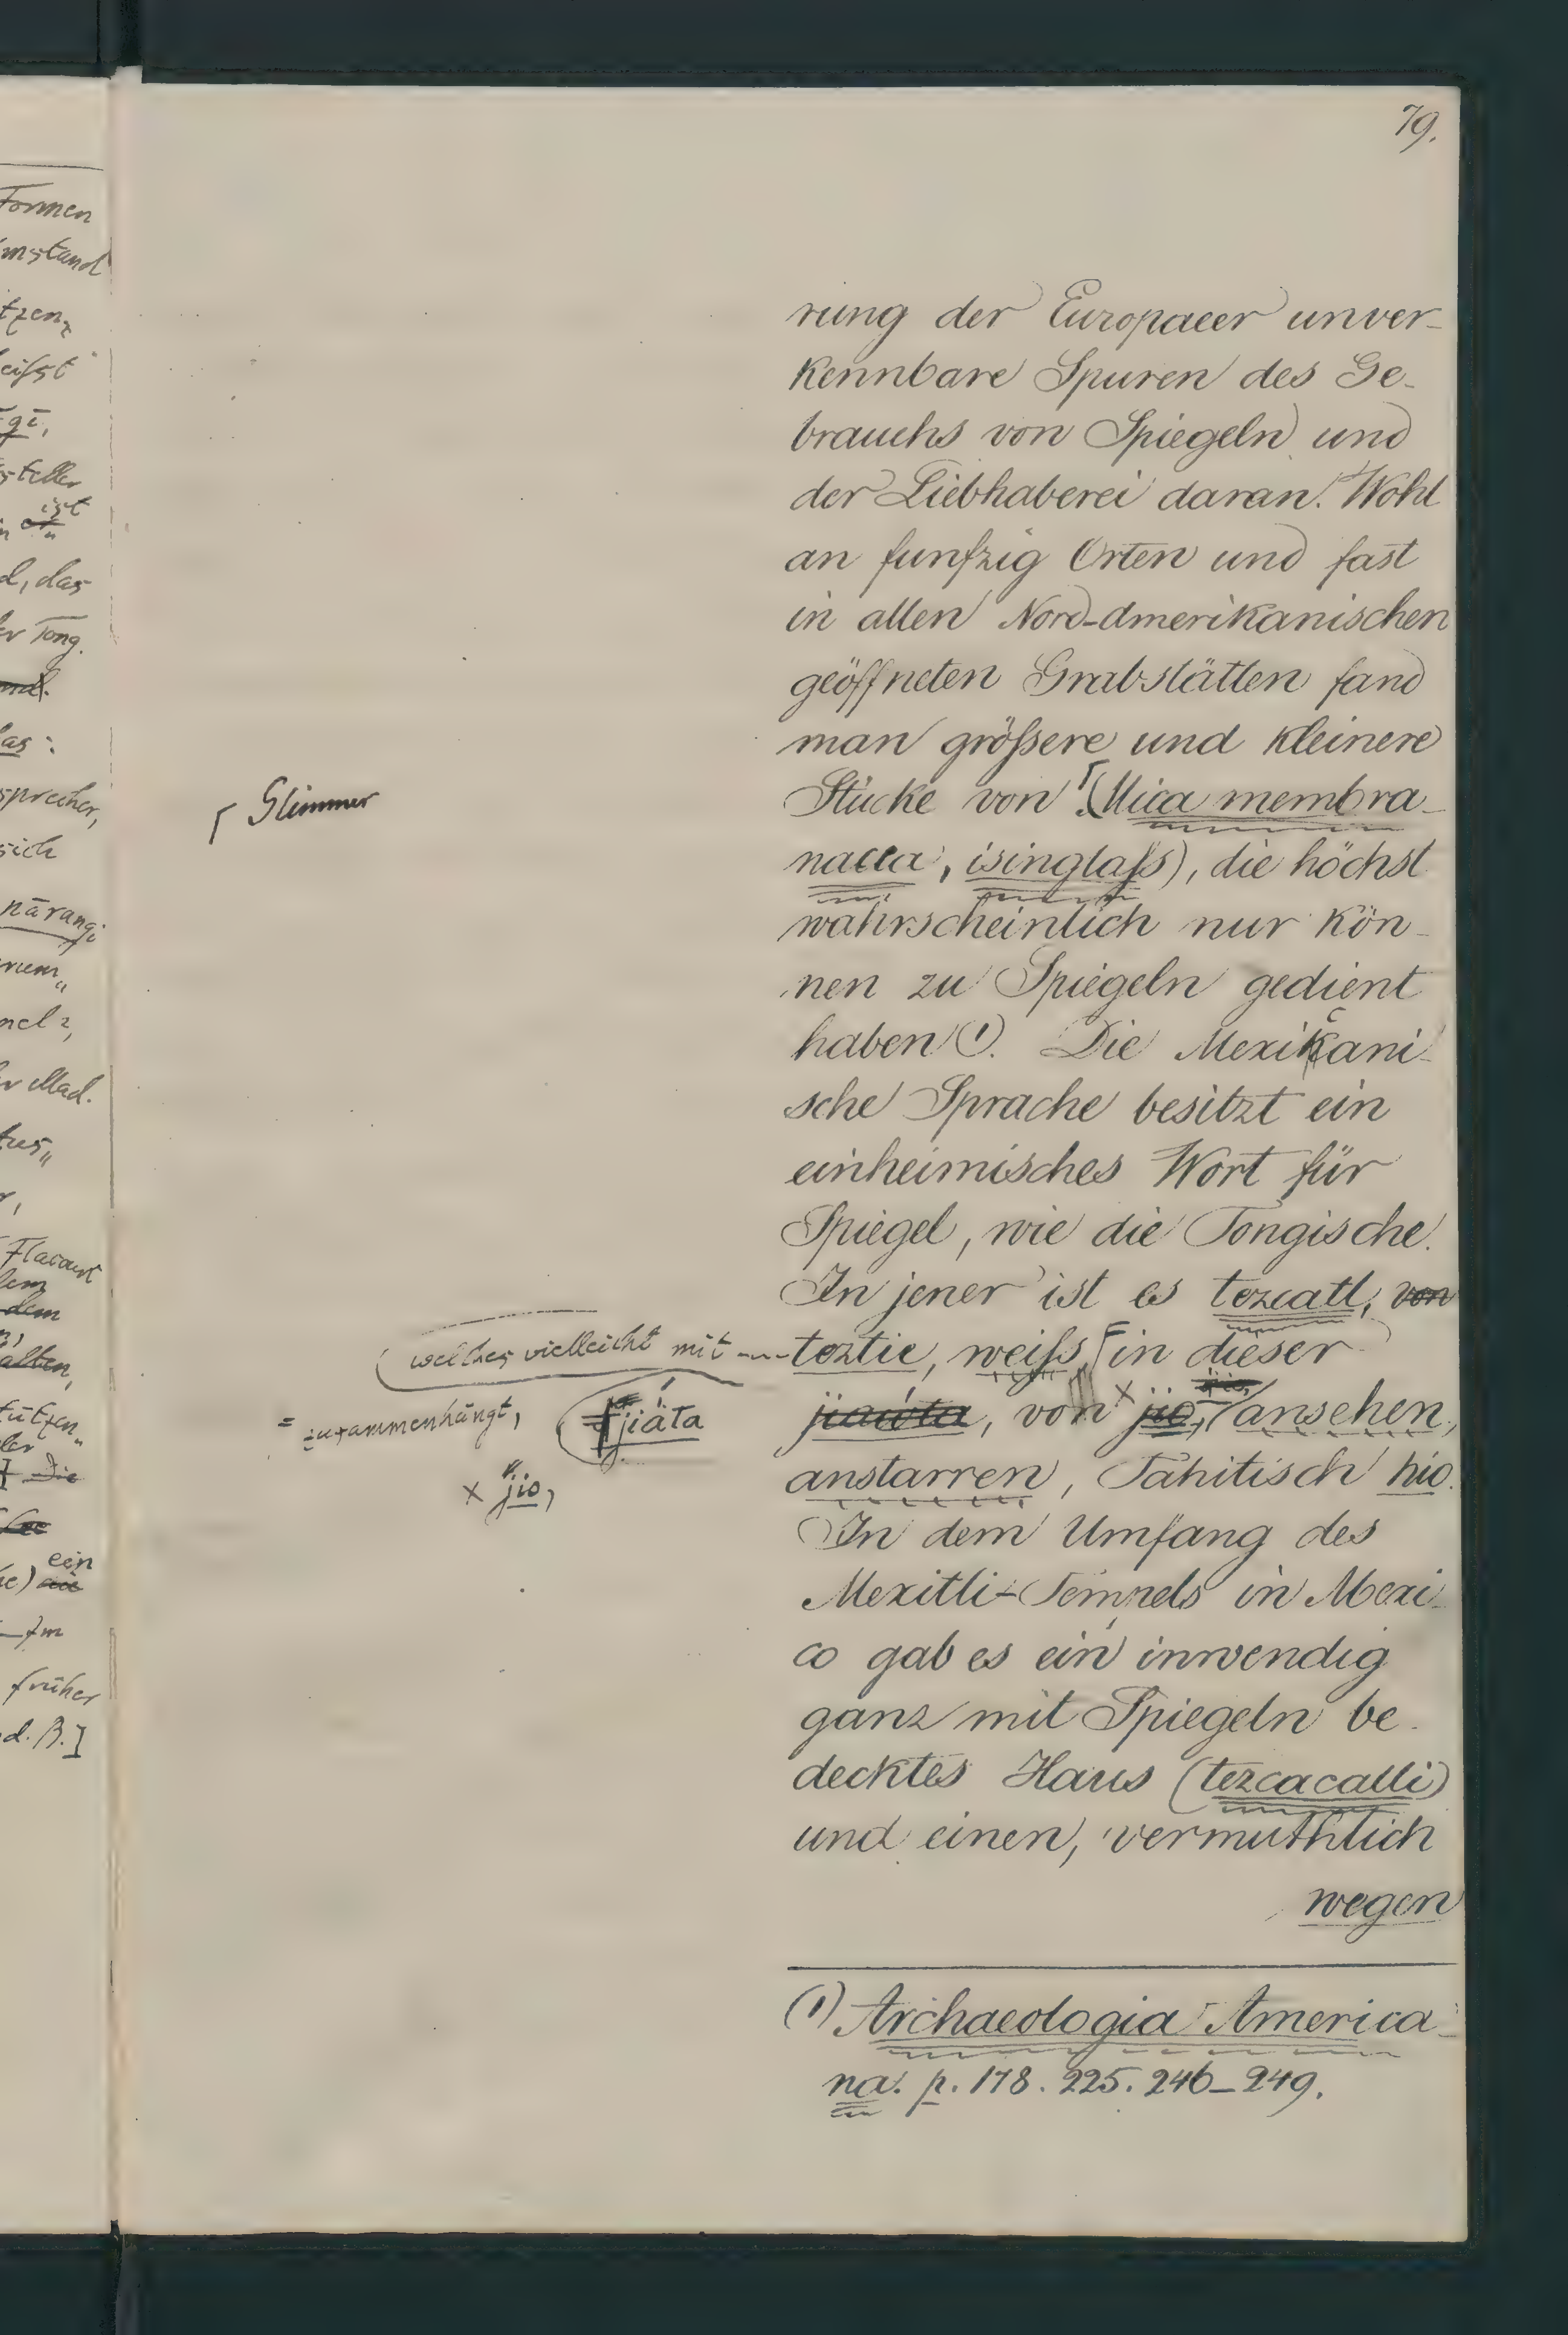 79.
rung der Europaeer unver-
kennbare Spuren des Ge-
brauchs von Spiegeln und
der Liebhaberei daran. Wohl
an funfzig Orten und fast
in allen Nord-Amerikanischen
geöffneten Grabstätten fand
man größere und kleinere
Stücke von ⌈(Mica membra-
⌈ Glimmer
nacea, isinglaſs), die höchst
wahrscheinlich nur kön-
nen zu Spiegeln gedient
haben (1). Die Mexicani-
sche Sprache besitzt ein
einheimisches Wort für
Spiegel, wie die Tongische.
In jener ist es tezcatl, von
welches vielleicht mit
teztic, weiſs, in dieser
= zusammenhängt,
jiata
jiawta, von × jio, ansehen,
× jio,
anstarren, Tahitisch hio.
In dem Umfang des
Mexitli-Tempels in Mexi-
co gab es ein inwendig
ganz mit Spiegeln be-
decktes Haus (tezcacalli)
und einen, vermuthlich
wegen
(1) Archaeologia America-
na. p. 178. 225. 246-249.
Formen
mstand
tzen,
eiſst
gi,
steller
ist
d, das
Tong.
as:
sprecher,
sich
nārangi
rum
Mad.
Flacourt
dem
alten,
tützen
Die
ein
früher
d. B.]